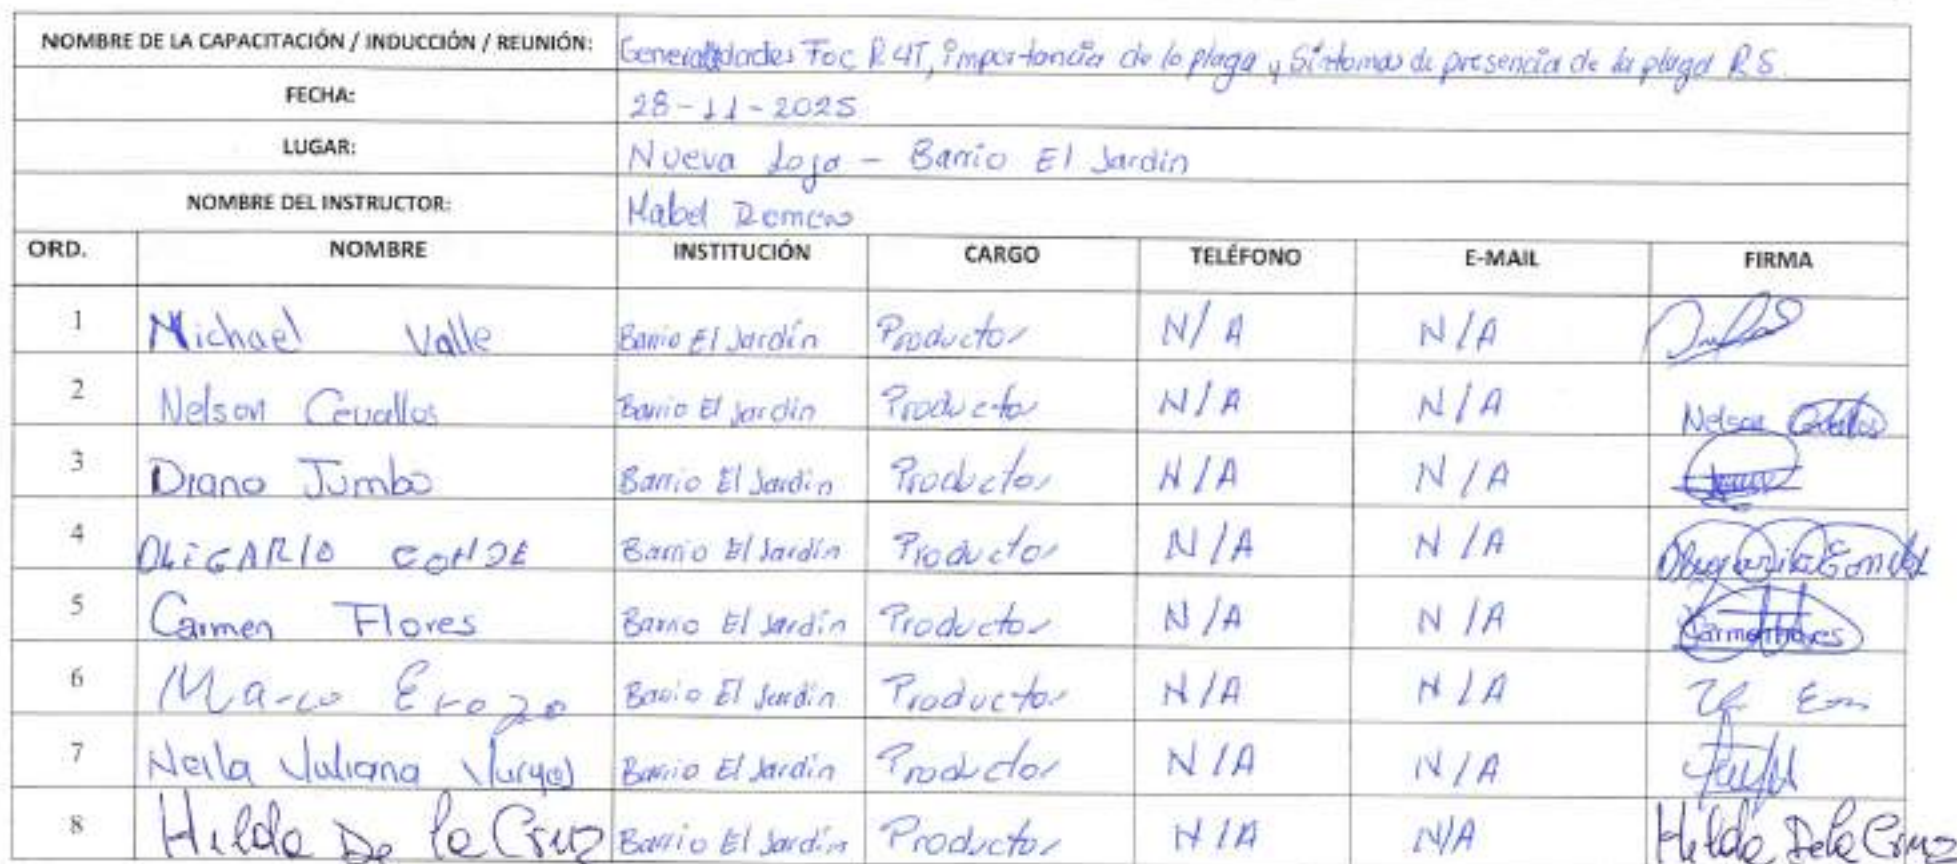 NOMBRE DE LA CAPACITACIÓN / INDUCCIÓN / REUNIÓN: Generalidades Foc R4T, importancia de la plaga y Síntomas de presencia de la plaga RS.
FECHA: 28-11-2025
LUGAR: Nueva Loja - Barrio El Jardín
NOMBRE DEL INSTRUCTOR: Mabel Romero
ORD. NOMBRE INSTITUCIÓN CARGO TELÉFONO E-MAIL FIRMA
1 Michael Valle Barrio El Jardín Productor N/A N/A
2 Nelson Cevallos Barrio El Jardín Productor N/A N/A Nelson Cevallos
3 Diana Jumbo Barrio El Jardín Productor N/A N/A
4 OLIGARIO CONDE Barrio El Jardín Productor N/A N/A
5 Carmen Flores Barrio El Jardín Productor N/A N/A Carmen Flores
6 Marco Erazo Barrio El Jardín Productor N/A N/A
7 Neila Juliana Barrio El Jardín Productor N/A N/A
8 Hilda De la Cruz Barrio El Jardín Productor N/A N/A Hilda De la Cruz